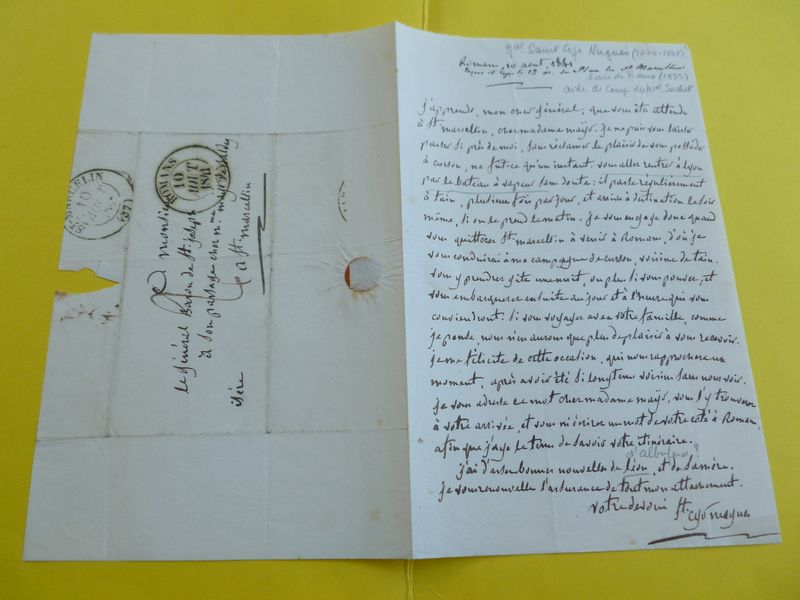 gal Saint Cyr Nugues (1774-1842)
Romans, 10 août, 1841
Pair de France (1832)
aide de camp du mal Suchet
j'apprends, mon cher général, que vous êtes attendu
à St marcellin, chez madame mayo. je ne puis vous laisser
passer si près de moi, sans réclamer le plaisir de vous posséder
à curson, ne fut-ce qu'un instant. vous allez rentrer à Lyon
par le bateau à vapeur sans doute: il passe régulièrement
à tain, plusieurs fois par jour, et arrive à destination le soir
même, si on le prend le matin. je vous engage donc quand
vous quitterez St. marcellin à venir à Romans, d'où je
vous conduirai à ma campagne de curson, voisine de tain.
vous y prendrez gîte une nuit, ou plus si vous pouvez, et
vous embarquerez ensuite au jour et à l'heure qui vous
conviendront. Si vous voyagez avec votre famille, comme
je pense, nous n'en aurons que plus de plaisir à vous recevoir.
je me félicite de cette occasion, qui nous rapprochera un
moment, après avoir été si longtems voisins sans nous voir.
je vous adresse ce mot chez madame mayo, vous l'y trouverez
à votre arrivée, et vous m'écrirez un mot de votre côté à Romans,
afin que j'aye le tems de savoir votre itinéraire.
d'Albufera?
j'ai d'assez bonnes nouvelles de léon, et de sa mère.
je vous renouvelle l'assurance de tout mon attachement.
votre dévoué St. cyr nugues
ST MARCELLIN
10
AOUT
(37)
ROMANS
10
AOUT
1841
Monsieur
le Général Baron de St. joseph
à son passage chez Mme
à St. marcellin
isère